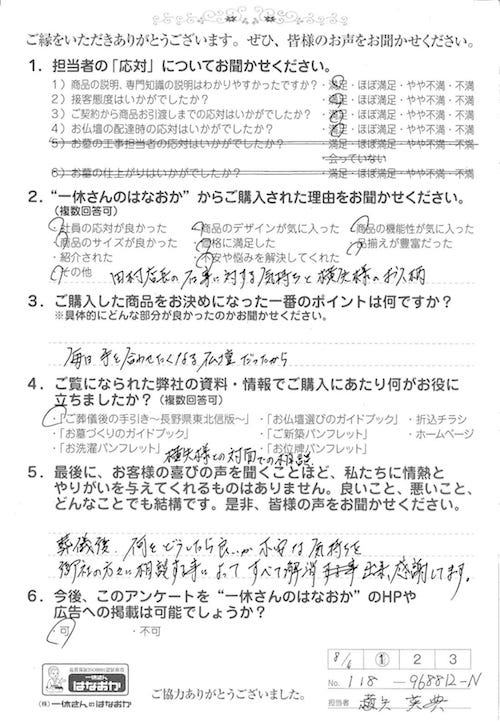 ご縁をいただきありがとうございます。ぜひ、皆様のお声をお聞かせください。
1．担当者の「応対」についてお聞かせください。
1）商品の説明、専門知識の説明はわかりやすかったですか？・満足・ほぼ満足・やや不満・不満
2）接客態度はいかがでしたか？ ・満足・ほぼ満足・やや不満・不満
3）ご契約から商品お引渡しまでの応対はいかがでしたか？・満足・ほぼ満足・やや不満・不満
4）お仏壇の配達時の応対はいかがでしたか？ ・満足・ほぼ満足・やや不満・不満
5）お墓の工事担当者の応対はいかがでしたか？ ・満足・ほぼ満足・やや不満・不満
・会っていない
6）お墓の仕上がりはいかがでしたか？ ・満足・ほぼ満足・やや不満・不満
2．“一休さんのはなおか”からご購入された理由をお聞かせください。
（複数回答可）
・社員の応対が良かった ・商品のデザインが気に入った ・商品の機能性が気に入った
・商品のサイズが良かった ・価格に満足した ・品揃えが豊富だった
・紹介された ・不安や悩みを解決してくれた
・その他 田村店長の石事に対する気持ちと 様のお人柄
3．ご購入した商品をお決めになった一番のポイントは何ですか？
※具体的にどんな部分が良かったのかお聞かせください。
毎日 手を合わせたくなる仏壇だったから
4．ご覧になられた弊社の資料・情報でご購入にあたり何がお役に
立ちましたか？（複数回答可）
・「ご葬儀後の手引き～長野県東北信版～」 ・「お仏壇選びのガイドブック」 ・折込チラシ
・「お墓づくりのガイドブック」 ・「ご新築パンフレット」 ・ホームページ
・「お洗濯パンフレット」 ・「お位牌パンフレット」
様との対面での相談
5．最後に、お客様の喜びの声を聞くことほど、私たちに情熱と
やりがいを与えてくれるものはありません。良いこと、悪いこと、
どんなことでも結構です。是非、皆様の声をお聞かせください。
葬儀後、何をどうしたら良いか不安な気持ちを
御社の方々に相談する事によってすべて解消出来、感謝してます。
6．今後、このアンケートを“一休さんのはなおか”のHPや
広告への掲載は可能でしょうか？
・可 ・不可
一休さん
はなおか
（株）一休さんのはなおか
ご協力ありがとうございました。
8/6 ① 2 3
No. 118 -968812-N
担当者 越矢 英典